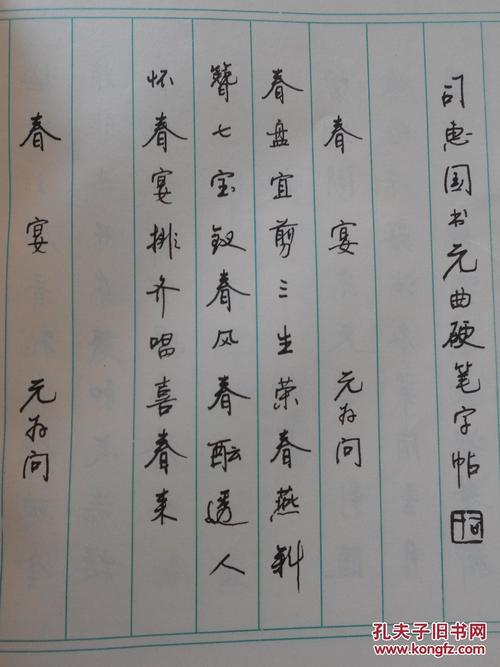 司惠国书元曲硬笔字帖
春宴 元好问
春盘宜剪三生荣春燕斜
簪七宝钗春风春酝透人
怀春宴排齐唱喜春来
春宴 元好问
孔夫子旧书网
www.kongfz.com